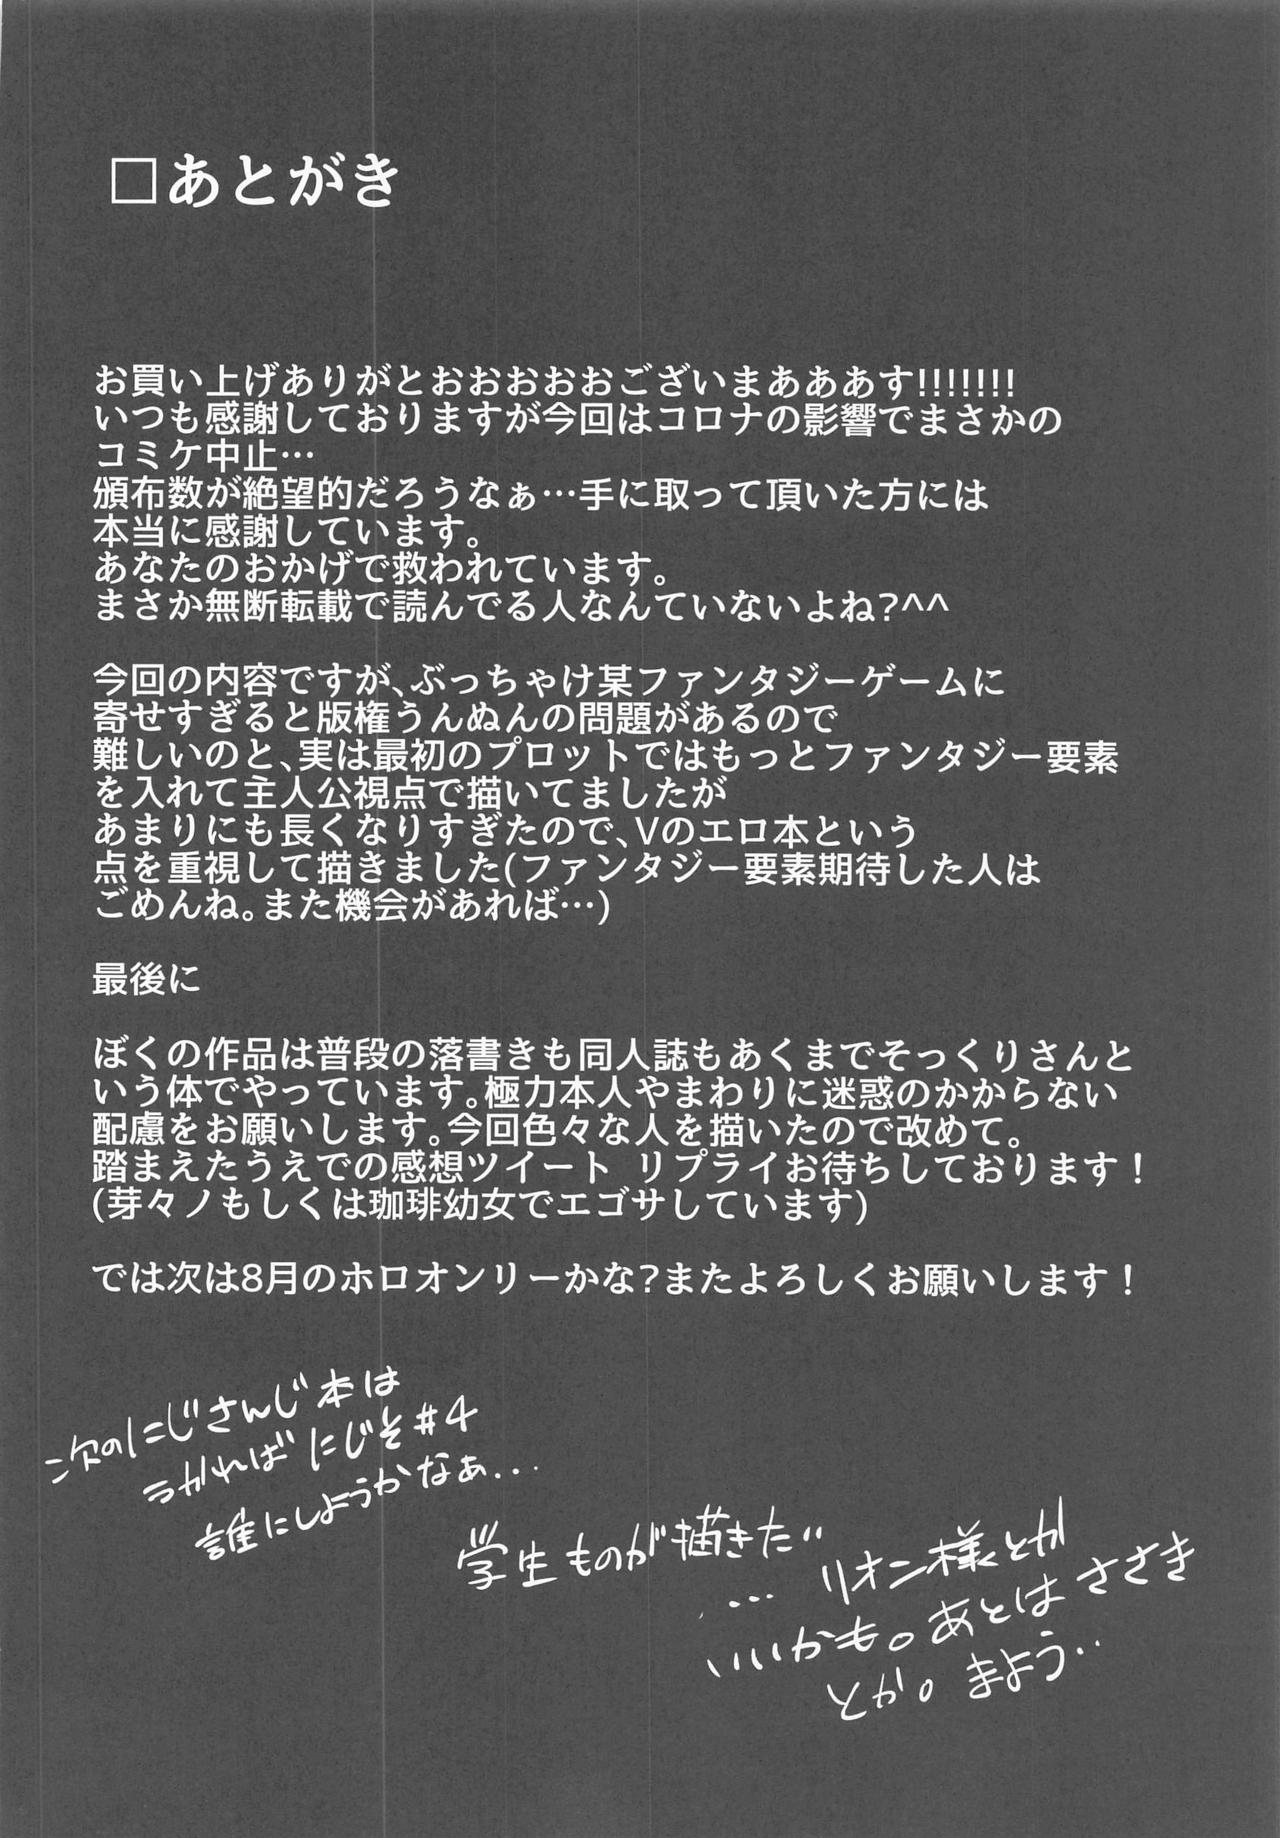 □あとがき
お買い上げありがとおおおおおございまあああす!!!!!!!
いつも感謝しておりますが今回はコロナの影響でまさかの
コミケ中止…
頒布数が絶望的だろうなぁ…手に取って頂いた方には
本当に感謝しています。
あなたのおかげで救われています。
まさか無断転載で読んでる人なんていないよね?^^
今回の内容ですが、ぶっちゃけ某ファンタジーゲームに
寄せすぎると版権うんぬんの問題があるので
難しいのと、実は最初のプロットではもっとファンタジー要素
を入れて主人公視点で描いてましたが
あまりにも長くなりすぎたので、Vのエロ本という
点を重視して描きました(ファンタジー要素期待した人は
ごめんね。また機会があれば…)
最後に
ぼくの作品は普段の落書きも同人誌もあくまでそっくりさんと
いう体でやっています。極力本人やまわりに迷惑のかからない
配慮をお願いします。今回色々な人を描いたので改めて。
踏まえたうえでの感想ツイート リプライお待ちしております！
(芽々ノもしくは珈琲幼女でエゴサしています)
では次は8月のホロオンリーかな?またよろしくお願いします！
次のにじさんじ本は
うかればにじそ#4
誰にしようかなぁ...
学生ものが描きたい
...リオン様とか
いいかも。あとはささき
とか。まよう..